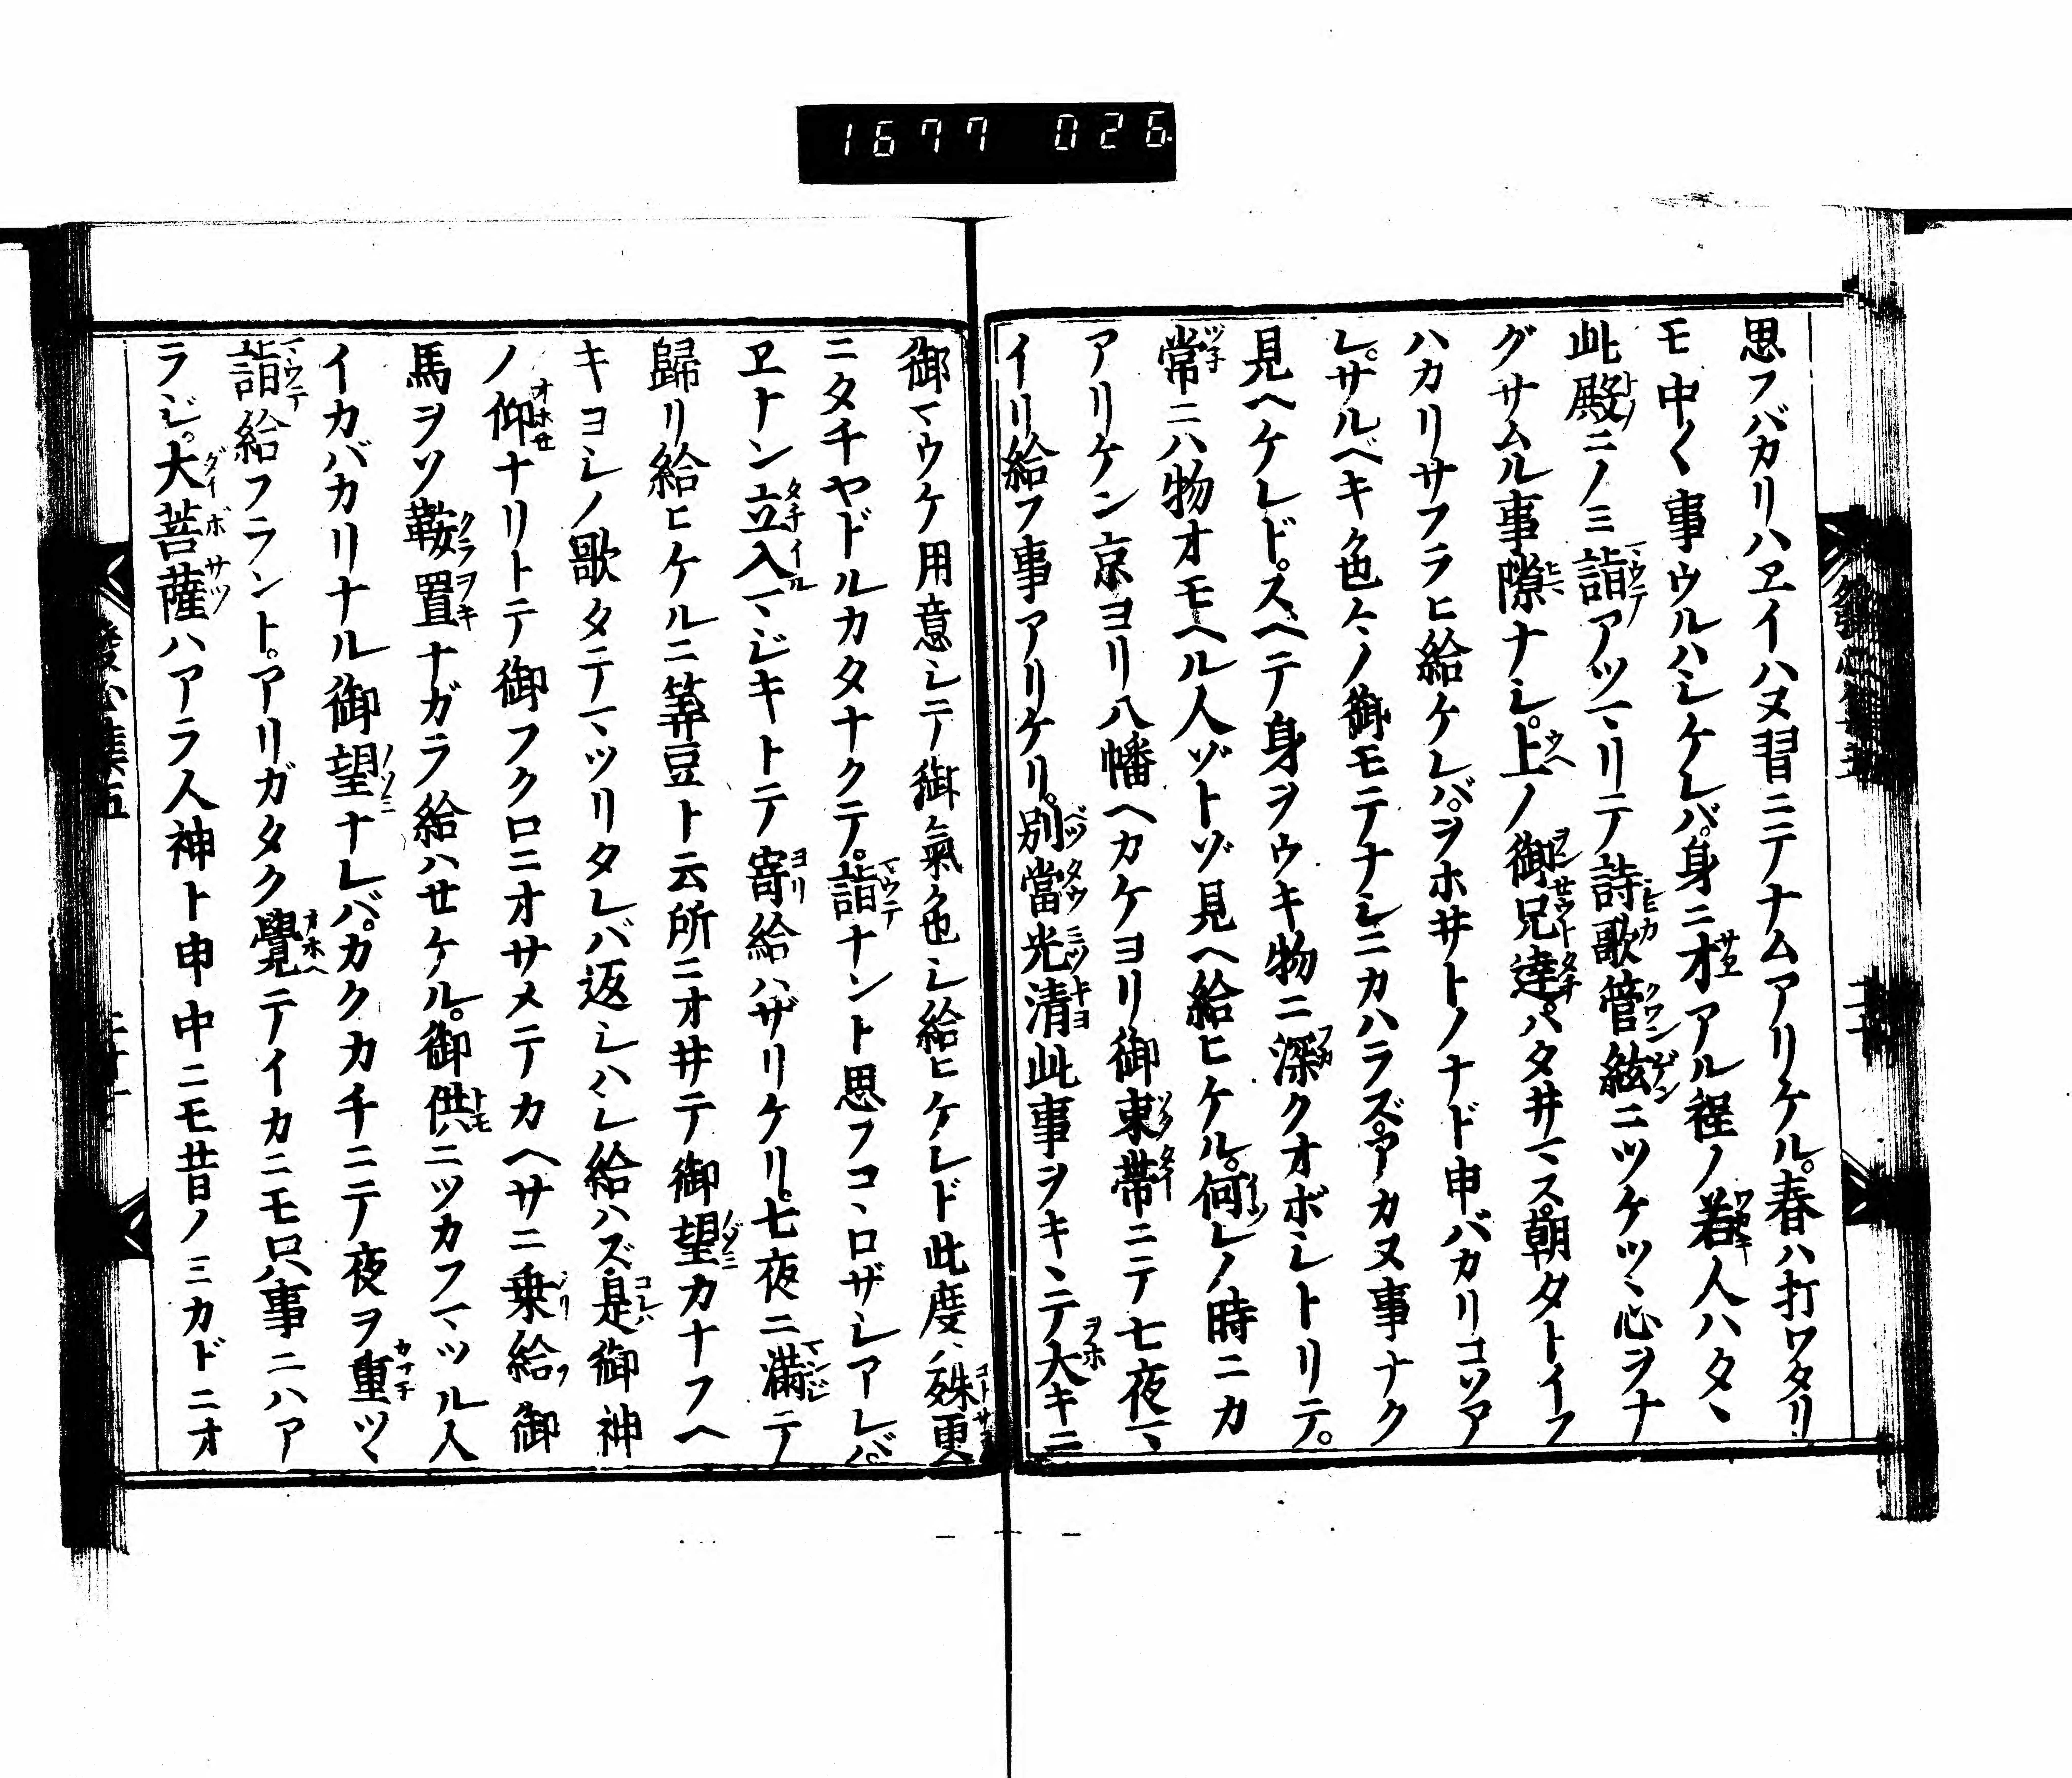 1677 026
思フバカリハヱイハヌ習ニテナムアリケル。春ハ打ワタリ
モ中〱事ウルハシケレバ。身ニ才アル程ノ若人ハタヽ
此殿ニノミ詣アツマリテ詩歌管絃ニツケツヽ心ヲナ
グサムル事隙ナシ。上ノ御兄達。ハタ井マス。朝タトイフ
ハカリサフラヒ給ケレバ。ヲホ井トノナド申バカリコソア
レ。サルベキ色々ノ御モテナシニカハラズ。アカヌ事ナク
見ヘケレド。スヘテ身ヲウキ物ニ深クオボシトリテ。
常ニハ物オモヘル人ゾトゾ見ヘ給ヒケル。何レノ時ニカ
アリケン京ヨリ八幡ヘカケヨリ御束帯ニテ七夜マヽ
イリ給フ事アリケリ。別當光清此事ヲキヽテ大キニ
御マウケ用意シテ御氣色シ給ヒケレド此度ハ殊更
ニタチヤドルカタナクテ。詣ナント思フコヽロザシアレバ。
ヱナン立入マジキトテ寄給ハザリケリ。七夜ニ満テ
歸リ給ヒケルニ美豆ト云所ニオ井テ御望カナフヘ
キヨシノ歌タテマツリタレバ返シハシ給ハズ是御神
ノ仰ナリトテ御フクロニオサメテカヘサニ乗給フ御
馬ヲソ鞍置ナガラ給ハセケル。御供ニツカフマツル人
イカバカリナル御望ナレバ。カクカチニテ夜ヲ重ツヽ
詣給フラント。アリガタク覺テイカニモ只事ニハア
ラジ。大菩薩ハアラ人神ト申中ニモ昔ノミカドニオ
發心集五